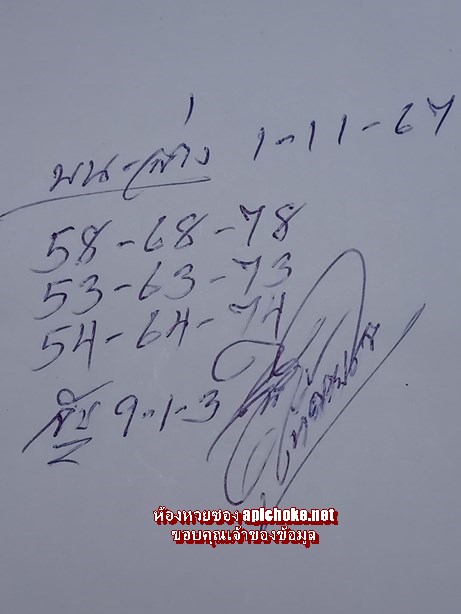 บน-ล่าง 1-11-67
58-68-78
53-63-73
54-64-74
9-1-3
ห้องหวยซอง apichoke.net
ขอบคุณเจ้าของข้อมูล